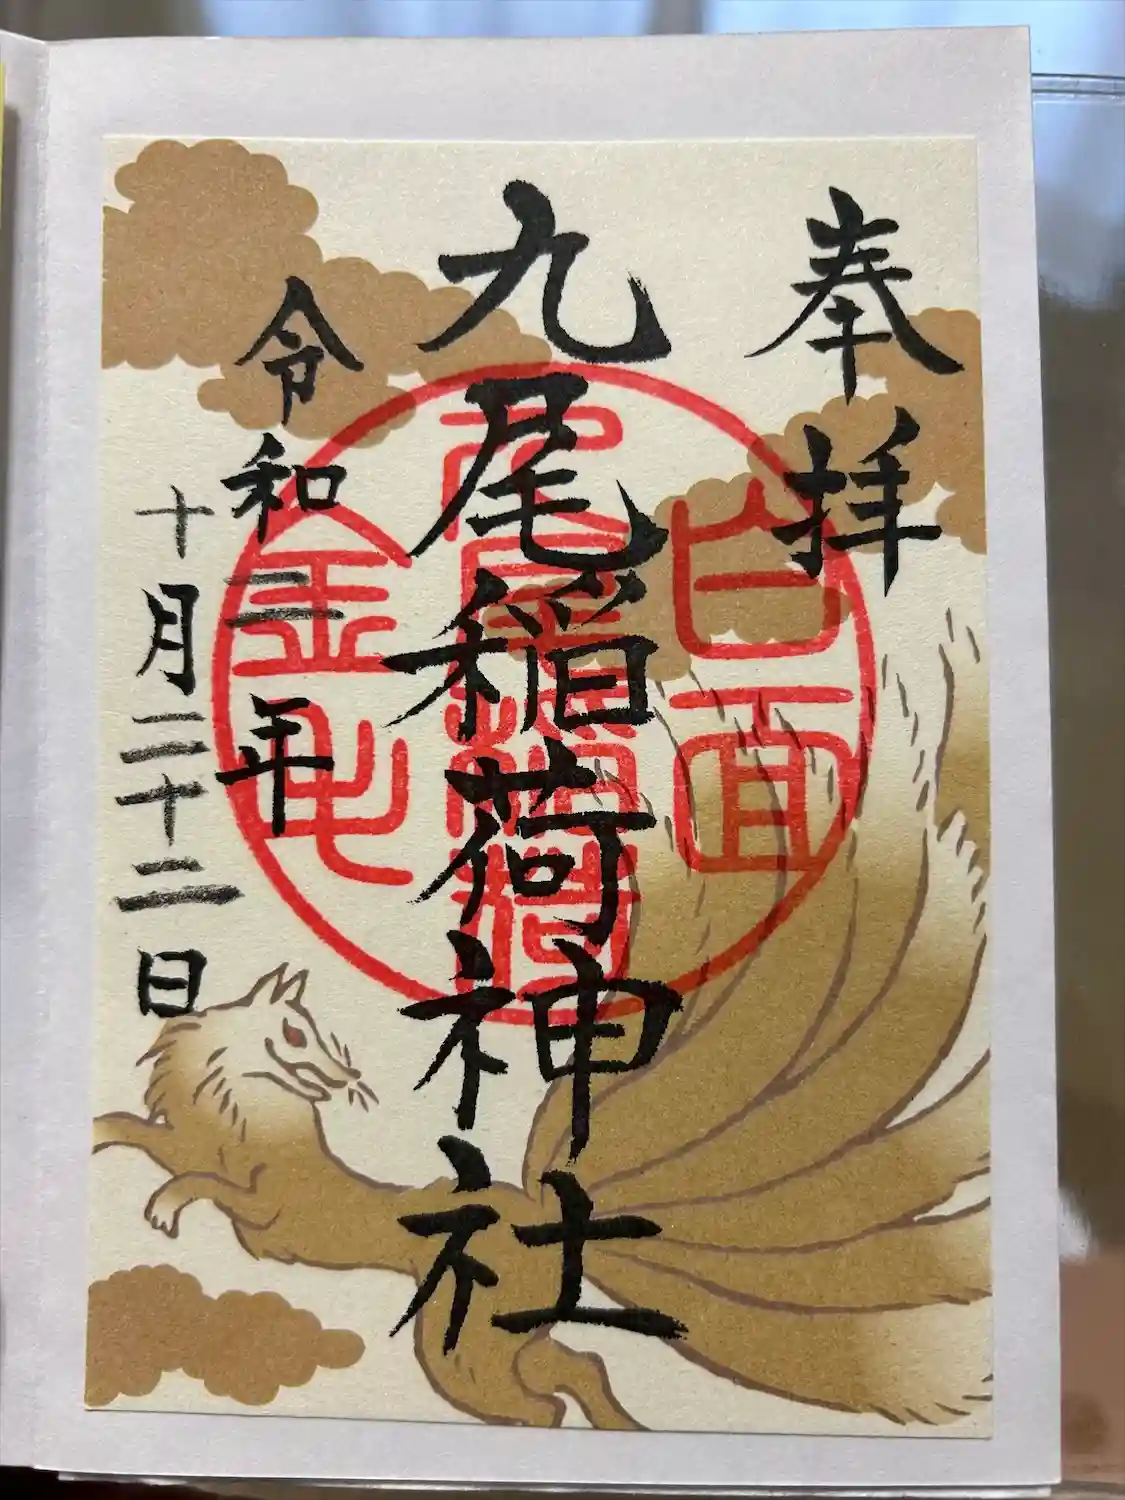 奉拝
九尾稲荷神社
令和二年
十月二十二日
白面
九尾稲荷
金毛